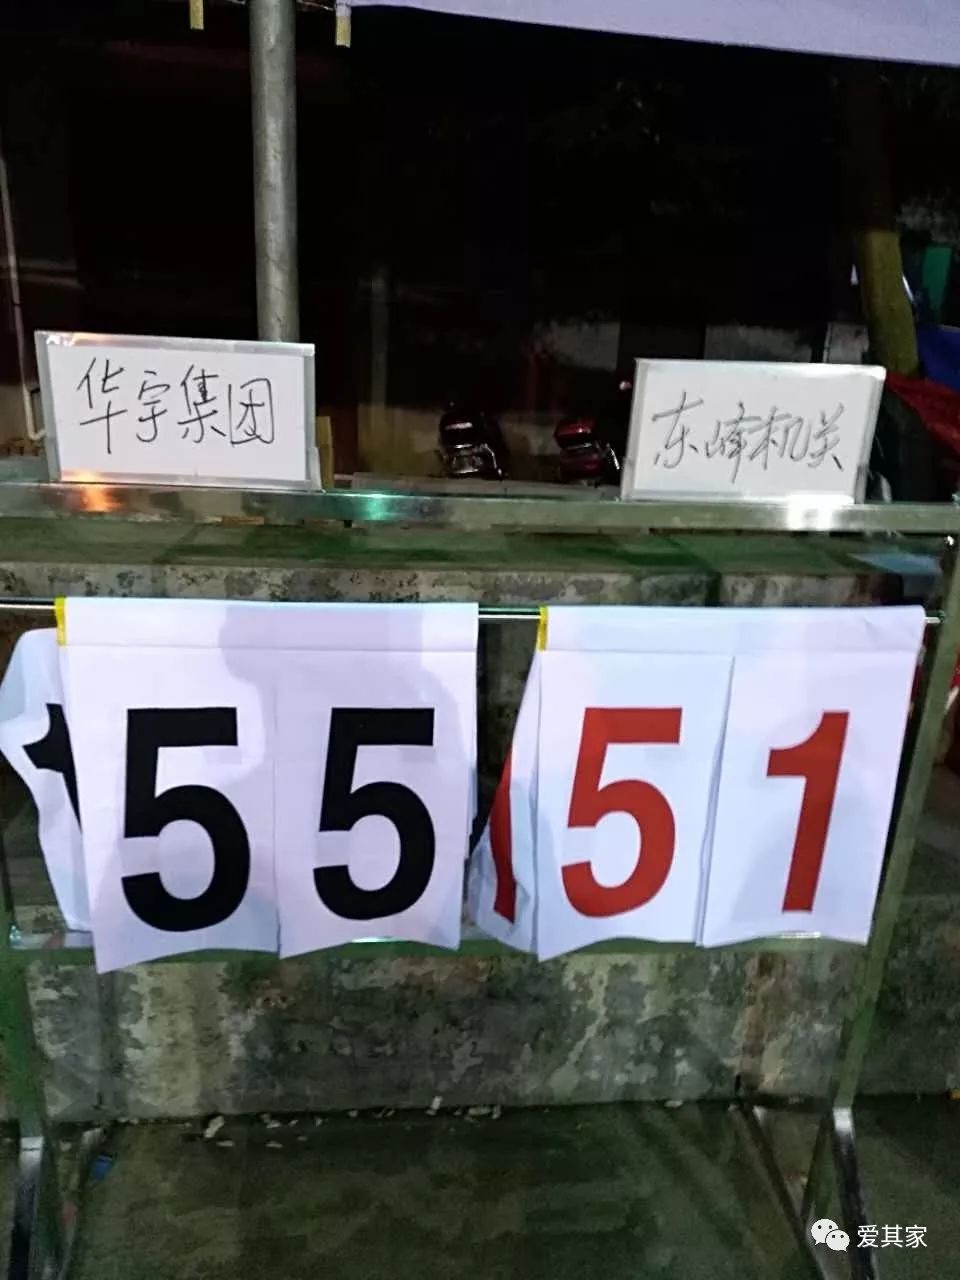 华宇集团
东峰机关
1 55
51
爱其家